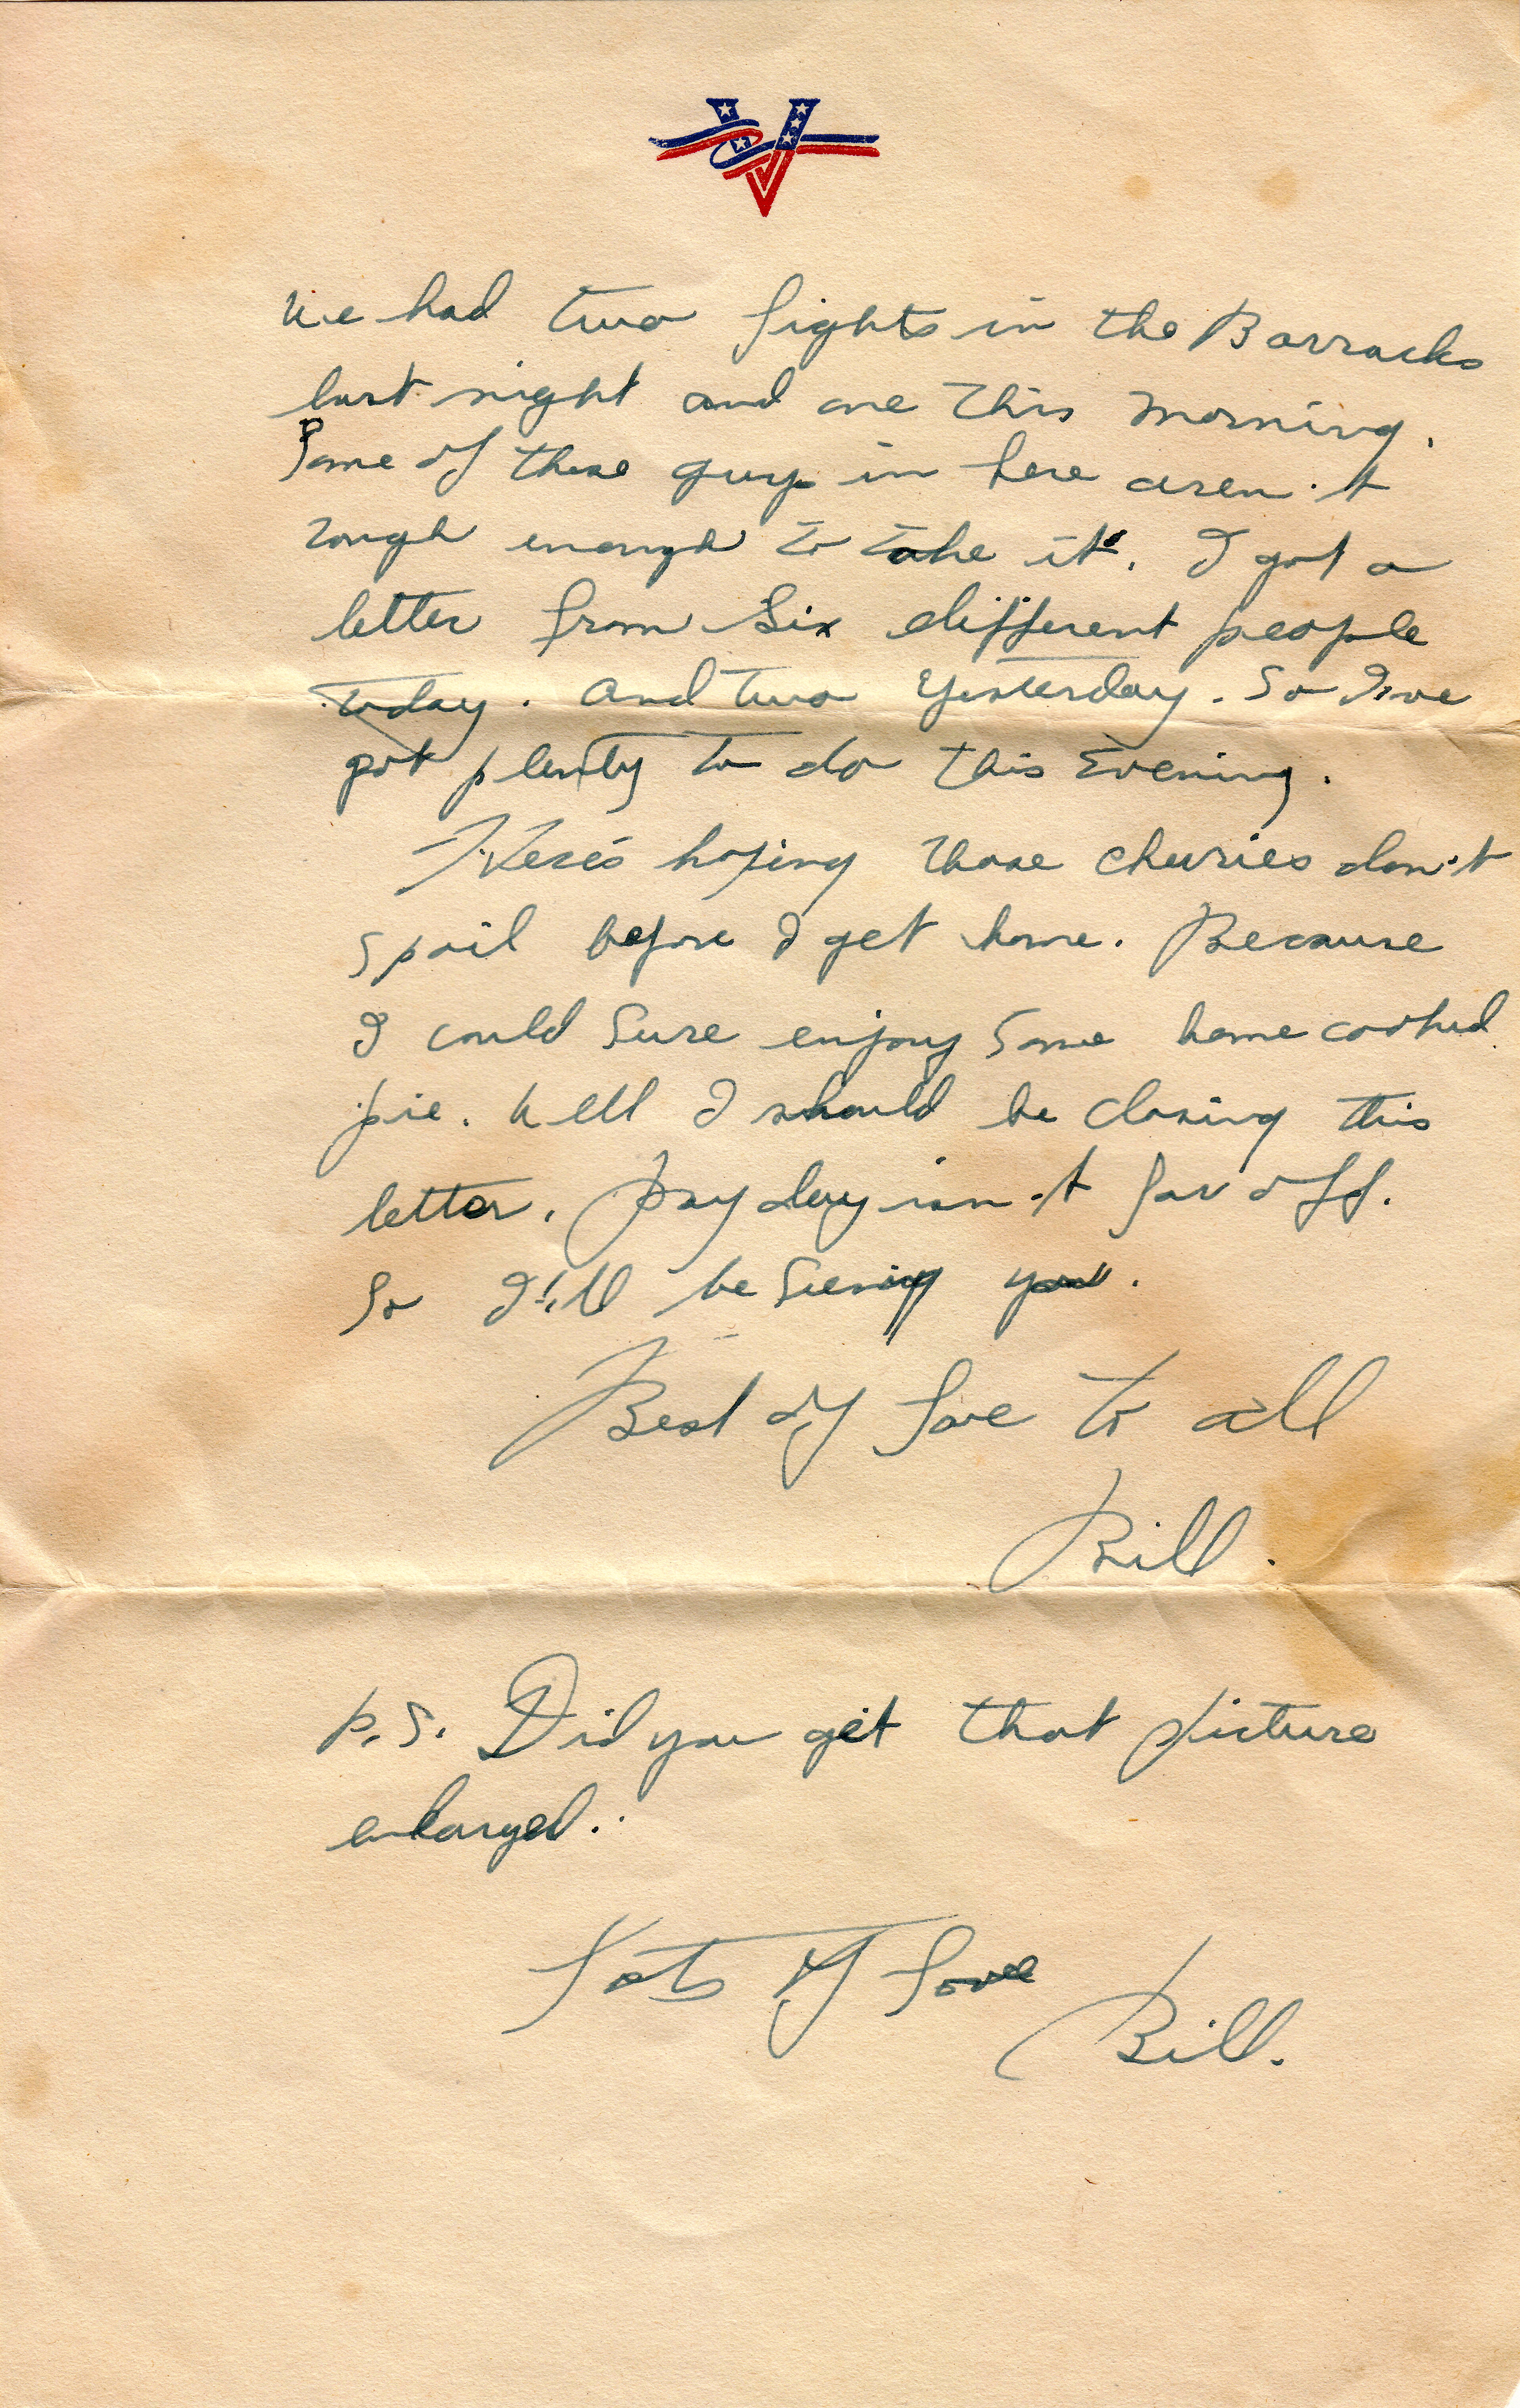 We had two fights in the Barracks
last night and one this morning.
Some of these guys in here aren't
rough enough to take it. I got a
letter from Six different people
today. And two yesterday. So I've
got plenty to do this Evening.
Here's hoping those cherries don't
spoil before I get home. Because
I could Sure enjoy Some home cooked
pie. Well I should be closing this
letter. Pay day isn't far off.
So I'll be Seeing you.
Best of Love to all
Bill.
P.S. Did you get that picture
enlarged.
Lots of Love
Bill.